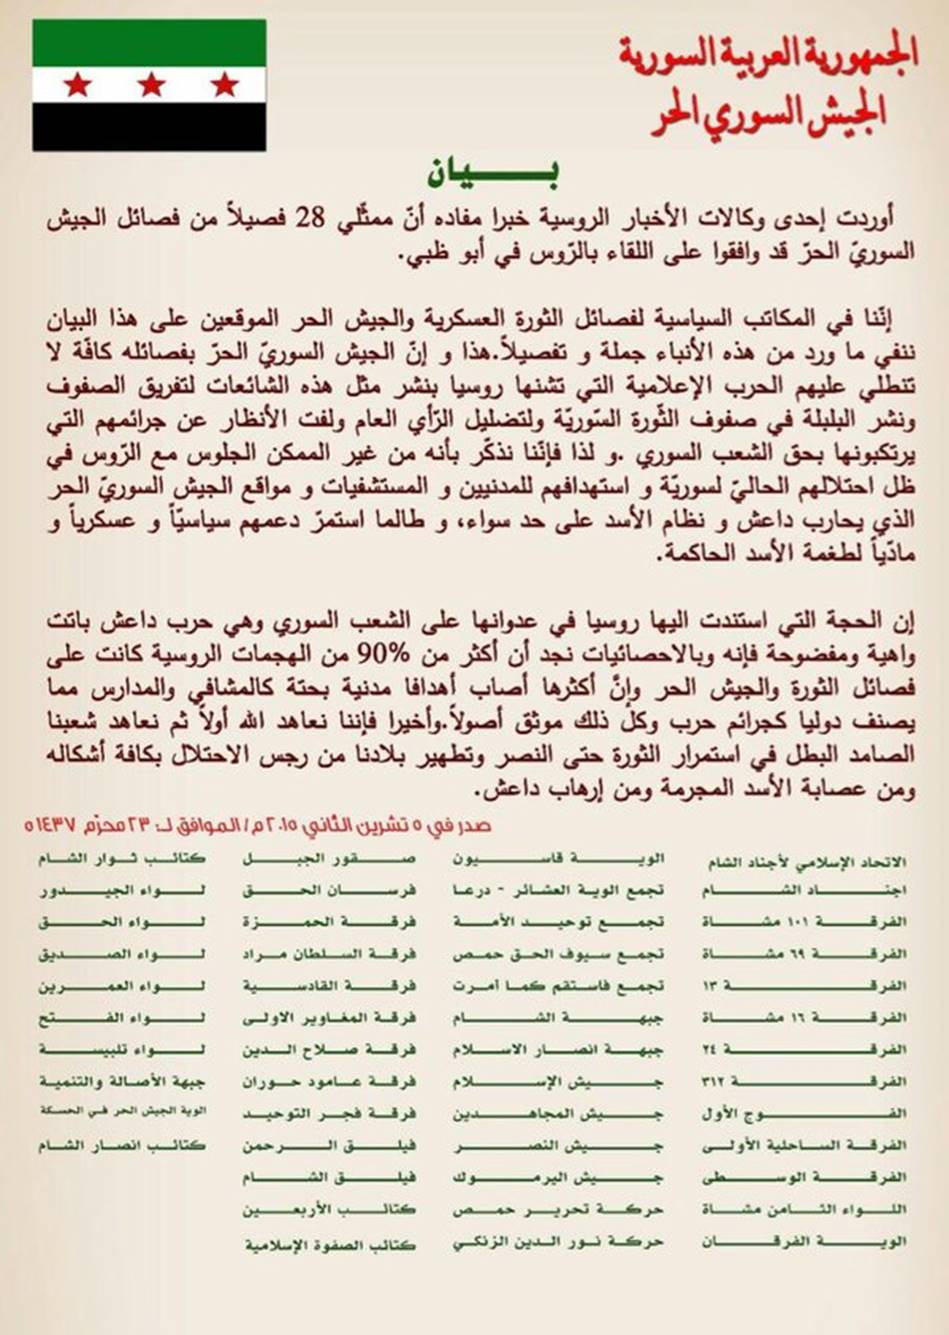 الجمهورية العربية السورية
الجيش السوري الحر
بـــــــيان
أوردت إحدى وكالات الأخبار الروسية خبرا مفاده أنّ ممثّلي 28 فصيلاً من فصائل الجيش
السوريّ الحرّ قد وافقوا على اللقاء بالرّوس في أبو ظبي.
إنّنا في المكاتب السياسية لفصائل الثورة العسكرية والجيش الحر الموقعين على هذا البيان
ننفي ما ورد من هذه الأنباء جملة و تفصيلاً.هذا و إنّ الجيش السوريّ الحرّ بفصائله كافّة لا
تنطلي عليهم الحرب الإعلامية التي تشنها روسيا بنشر مثل هذه الشائعات لتفريق الصفوف
ونشر البلبلة في صفوف الثّورة السّوريّة ولتضليل الرّأي العام ولفت الأنظار عن جرائمهم التي
يرتكبونها بحق الشعب السوري .و لذا فإنّنا نذكّر بأنه من غير الممكن الجلوس مع الرّوس في
ظل احتلالهم الحاليّ لسوريّة و استهدافهم للمدنيين و المستشفيات و مواقع الجيش السوريّ الحر
الذي يحارب داعش و نظام الأسد على حد سواء، و طالما استمرّ دعمهم سياسيّاً و عسكرياً و
مادّياً لطغمة الأسد الحاكمة.
إن الحجة التي استندت اليها روسيا في عدوانها على الشعب السوري وهي حرب داعش باتت
واهية ومفضوحة فإنه وبالاحصائيات نجد أن أكثر من 90% من الهجمات الروسية كانت على
فصائل الثورة والجيش الحر وإنَّ أكثرها أصاب أهدافا مدنية بحتة كالمشافي والمدارس مما
يصنف دوليا كجرائم حرب وكل ذلك موثق أصولاً.وأخيرا فإننا نعاهد الله أولاً ثم نعاهد شعبنا
الصامد البطل في استمرار الثورة حتى النصر وتطهير بلادنا من رجس الاحتلال بكافة أشكاله
ومن عصابة الأسد المجرمة ومن إرهاب داعش.
صدر في ٥ تشرين الثاني ٢٠١٥م / الموافق لـ: ٢٣ محرّم ١٤٣٧ ه
الاتحاد الإسلامي لأجناد الشام
اجنـــاد الشـــام
الفرقـــة ١٠١ مشـــاة
الفرقـــة ٦٩ مشـــاة
الفرقـــة ١٣
الفرقـــة ١٦ مشـــاة
الفرقـــة ٢٤
الفرقـــة ٣١٢
الفـــوج الأول
الفرقـــة الساحلية الأولـــى
الفرقـــة الوســـطى
اللـــواء الثـــامن مشـــاة
الويـــة الفرقـــان
الويـــة قاســـيون
تجمع الوية العشائر - درعا
تجمـــع توحيـــد الأمـــة
تجمـــع سيوف الحـق حمـص
تجمع فاستقم كمـا أمـرت
جبهـــة الشـــام
جبهـــة انصـــار الاســـلام
جـــيش الإســـلام
جـــيش المجاهـــدين
جـــيش النصـــر
جـــيش اليرمـــوك
حركـــة تحريـــر حمـــص
حركة نـــور الـــدين الزنكـــي
صـــقور الجبـــل
فرســـان الحـــق
فرقـــة الحمـــزة
فرقـــة السـلطان مـراد
فرقـــة القادســـية
فرقـة المغـاوير الاولـى
فرقـــة صـــلاح الـــدين
فرقـــة عـــامود حـــوران
فرقـــة فجـــر التوحيـــد
فيلـــق الـــرحمن
فيلـــق الشـــام
كتائـــب الأربعـــين
كتائب الصفوة الإسلامية
كتائـــب ثـــوار الشـــام
لـــواء الجيـــدور
لـــواء الحـــق
لـــواء الصـــديق
لـــواء العمـــرين
لـــواء الفـــتح
لـــواء تلبيســـة
جبهة الأصالة والتنمية
الوية الجيش الحر فـي الحسكة
كتائـب انصـار الشـام